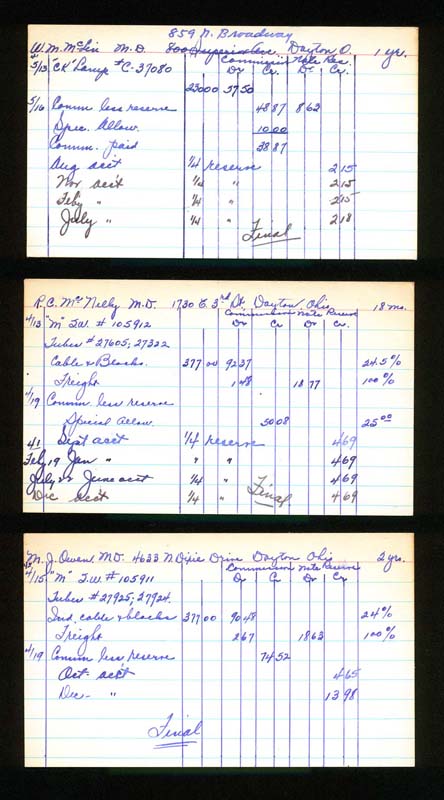 859 N. Broadway
W. M. McLin M.D. 800 Superior Ave. Dayton O. 1 yr.
Commission Note Res.
5/13 "CK" Lamp #C-37080 Dr Cr. Dr. Cr.
230.00 37.50
5/16 Comm less reserve 48 87 8 62
Spec. Allow. 10.00
Comm. paid 38 87
Aug acc't 1/4 reserve 2 15
Nov acc't 1/4 " 2 15
Feb'y " 1/4 " 2 15
July " 1/4 " 2 18
Final
R. C. McNelly M.D. 1730 E. 3rd St. Dayton, Ohio 18 mo.
Commission Note Reserve
4/13 "M" S.W. #105912 Dr Cr Dr Cr.
Tubes #27605; 27322
Cable & Blocks. 377 00 92 37 24.5%
Freight 1 48 18 77 100%
4/19 Comm. less reserve
Special Allow. 50 08 25 00
41 Sept acc't 1/4 reserve 4 69
Feb, 19 Jan " " " 4 69
July 22 June acc't 1/4 " 4 69
Dec acc't 1/4 " Final 4 69
M. J. Owen, M.D. 4633 N Dixie Drive Dayton Ohio 2 yr.
Commission Note Reserve
4/15 "M" S.W. #105911 Dr Cr. Dr Cr.
Tubes #27925; 27924.
Ind. cable & blocks 377 00 90 48 24%
Freight 2 67 18 63 100%
4/19 Comm less reserve 74 52
Oct. acc't 4 65
Dec - " 13 98
Final